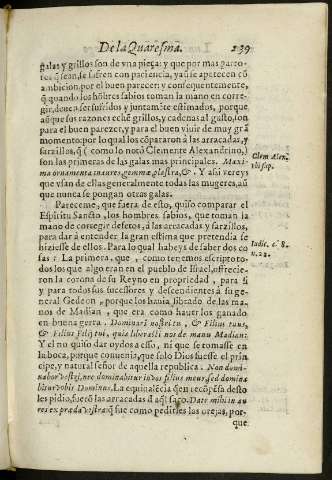 De la Quaresma. 239
galas y grillos son de vna pieça: y que por mas pareto-
res q̃ sean, se sufren con paciencia, ya vn se apetecen cõ
ambicion, por el buen parecer: y consequentemente,
q̃ quando los hõbres sabios toman la mano en corre-
gir, deuen ser sufridos y juntamẽte estimados, porque
aũque sus razones echẽ grillos, y cadenas al gusto, son
para el buen parezer, y para el buen viuir de muy grã
momento: por lo qual los cõpararon à las arracadas, y
sarzillos, q̃ (como lo notò Clemente Alexandrino,)
son las primeras de las galas mas principales. Maxi-
ma ornamenta inaures, gemmæ, plastra, &c. Y assi vereys
que vsan de ellas generalmente todas las mugeres, aũ
que nunca se pongan otras galas.
Clem Alex.
vbi sup.
Pareceme, que fuera de esto, quiso comparar el
Espiritu Sancto, los hombres sabios, que toman la
mano de corregir defetos, à las arracadas y sarzillos,
para dar à entender la gran estima que pretendia se
hiziesse de ellos. Para lo qual habeys de saber dos co
sas: La primera, que, como tenemos escripto to-
dos los que algo eran en el pueblo de Israel, offrecie-
ron la corona de su Reyno en propriedad, para si
y para todos sus sucessores y descendientes à su ge-
neral Gedeon, porque los hauia librado de las ma-
nos de Madian, que era como hauer los ganado
en buena gerra. Dominare nostri tu, & Filius tuus,
& Filius Filij tui, quia liberasti nos de manu Madian:
Iudic. c. 8.
n. 22.
Y el no quiso dar oydos a esso, ni que se tomasse en
la boca, parque conuenia, que solo Dios fuesse el prin
cipe, y natural señor de aquella republica. Non domi-
nabor vestri, nec dominabitur in vos filius meus, sed domina
bitur vobis Dominus. La equinalẽcia q̃ en recõpẽsa desto
les pidio, fuerõ las arracadas d̃ aq̃l saco. Date mihi in au
res ex præda vestra q̃ fue como pedirles las orejas, por-
que